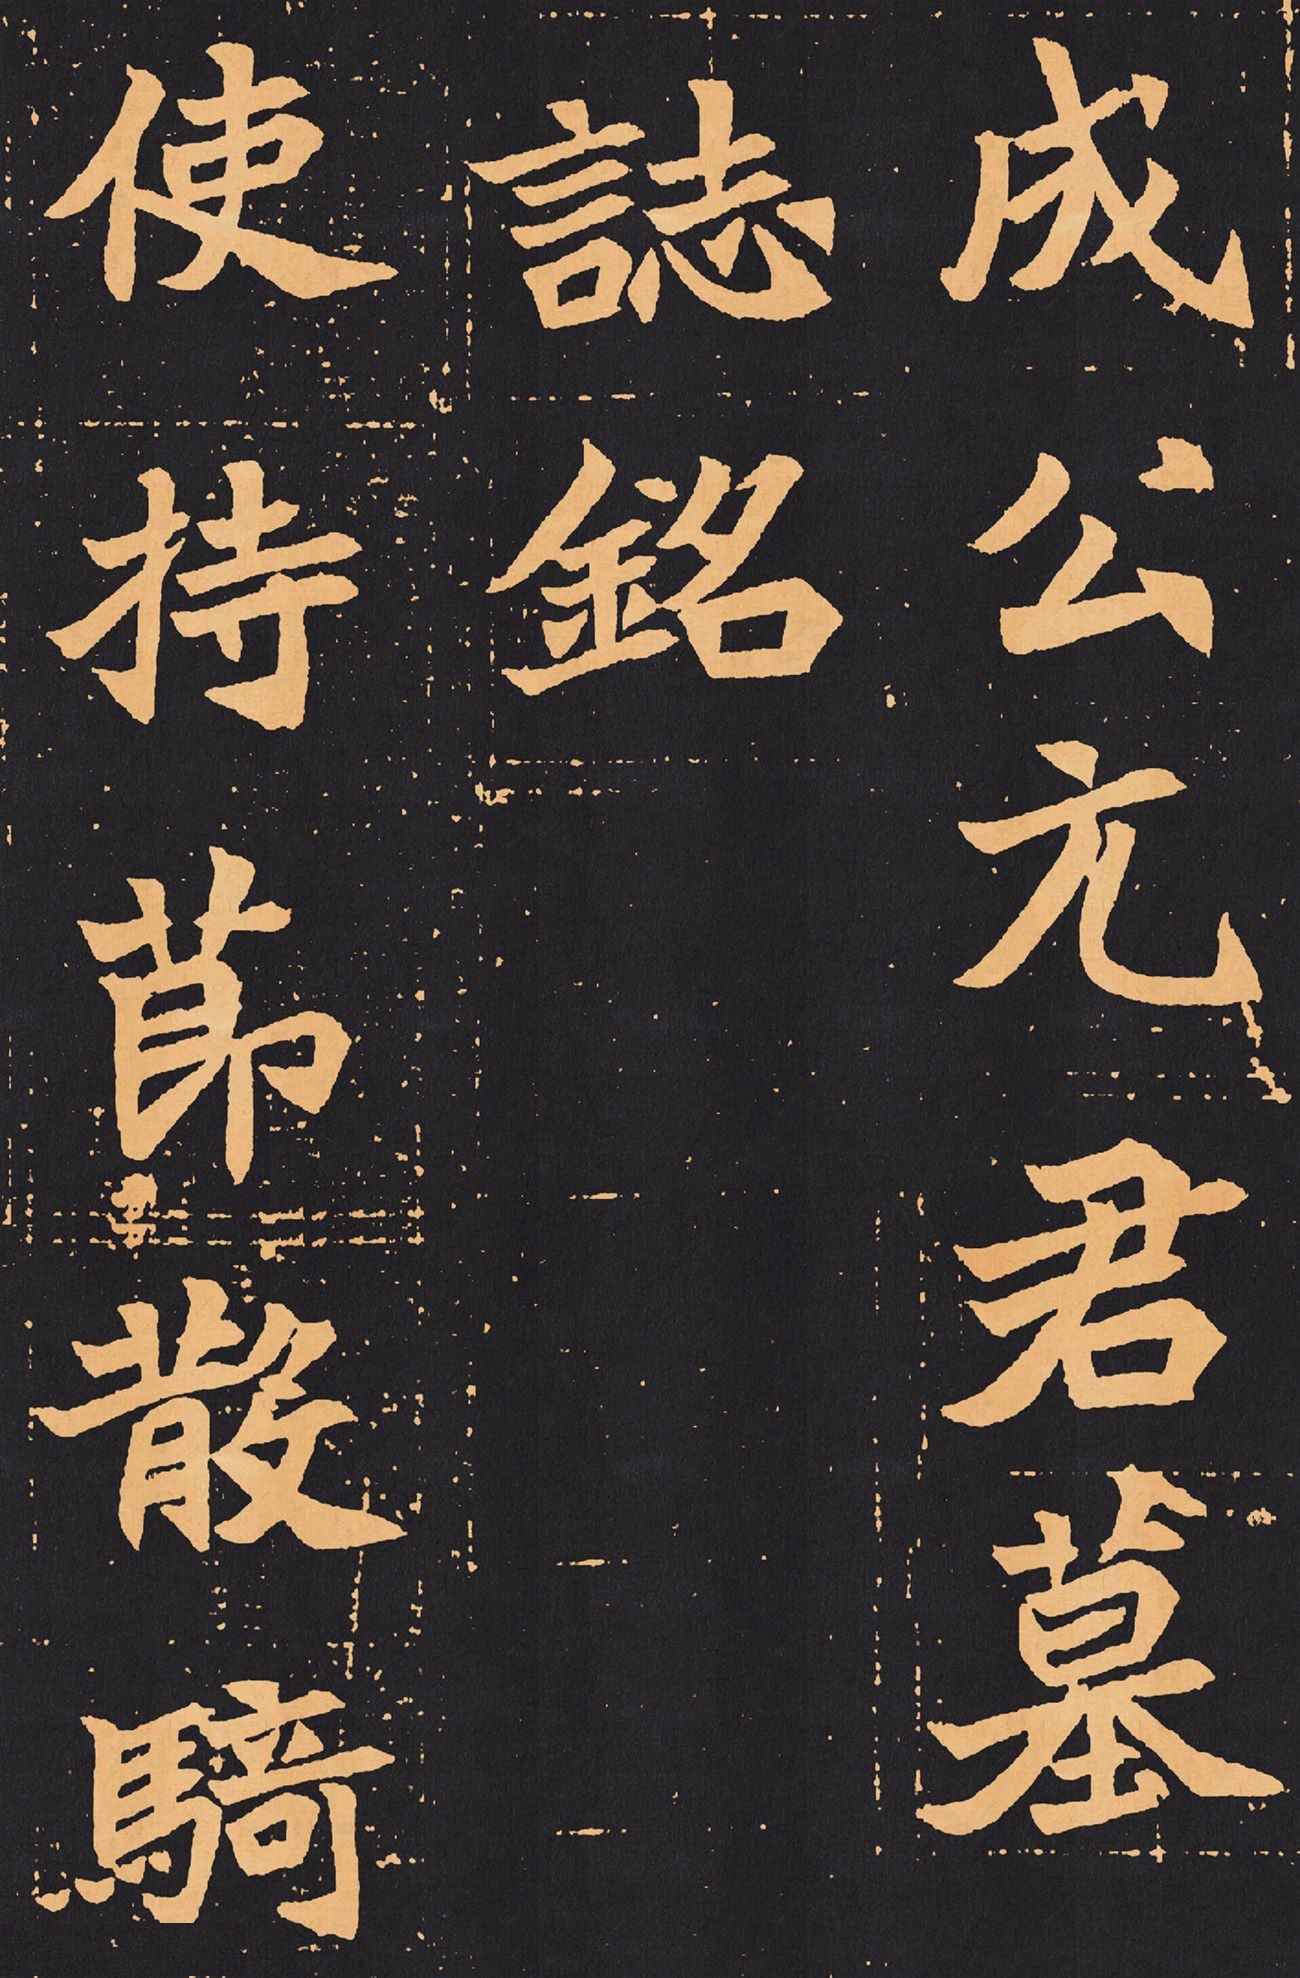 成公元君墓
誌銘
使持節散騎